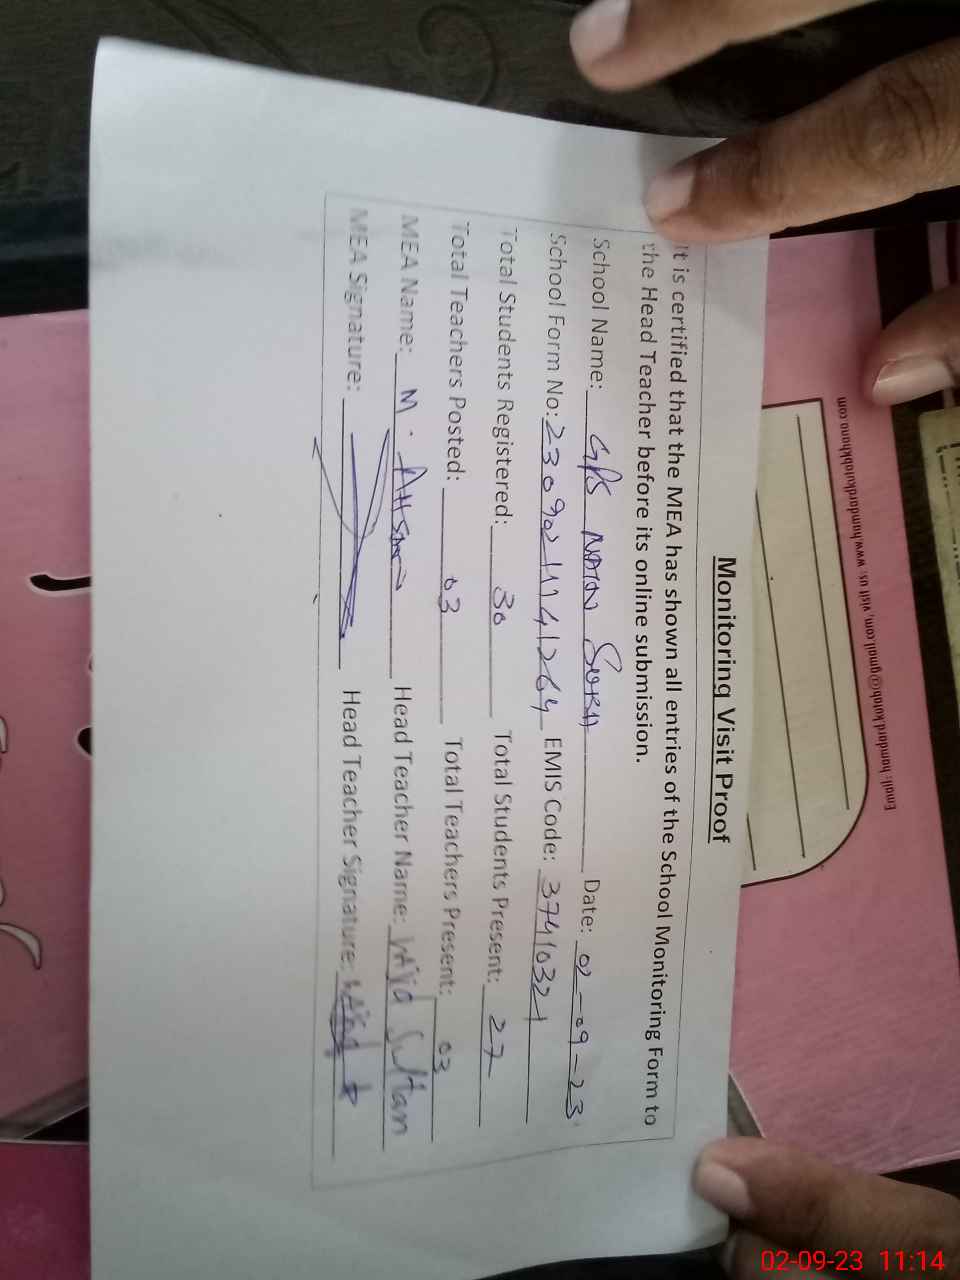 Monitoring Visit Proof
It is certified that the MEA has shown all entries of the School Monitoring Form to
the Head Teacher before its online submission.
School Name: GPS Date: 02-09-23
School Form No: EMIS Code: 37410321
Total Students Registered: 30 Total Students Present: 27
Total Teachers Posted: 03 Total Teachers Present: 03
MEA Name: M. Head Teacher Name: Sultan
MEA Signature: Head Teacher Signature:
Email: hamdard.kotab@gmail.com, visit us: www.hamdardkotabkhana.com
02-09-23 11:14